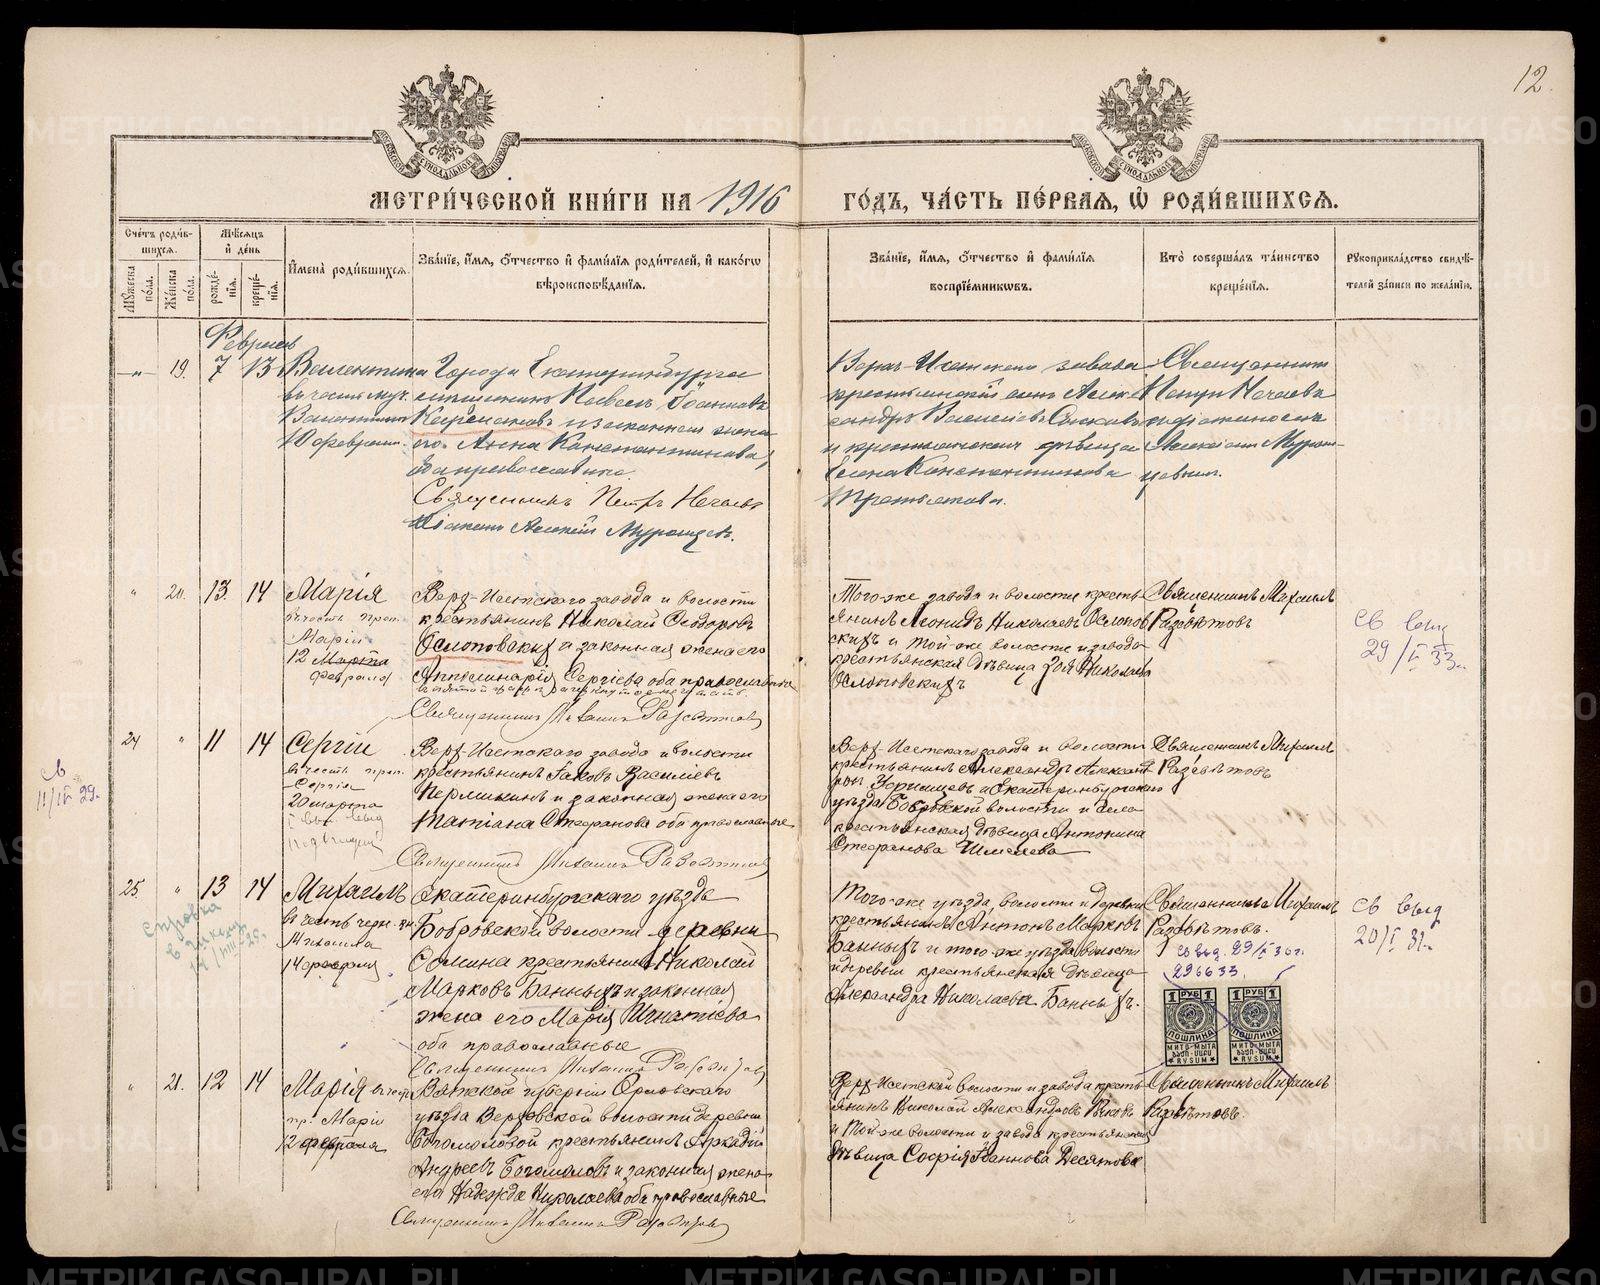 12.
МОСКОВСКОЙ СУНОДАЛЬНОЙ ТИПОГРАФІИ
МОСКОВСКОЙ СУНОДАЛЬНОЙ ТИПОГРАФІИ
МЕТРИ́ЧЕСКОЙ КНИ́ГИ НА 1916 ГО́ДЪ, ЧА́СТЬ ПЕ́РВАЯ, Ѡ҆ РОДИ́ВШИХСЯ.
Сче́тъ роди́в-
шихся.
Мꙋ́жеска по́ла.
Же́нска по́ла.
Мѣ́сяцъ
и҆ де́нь
рожде́нїя.
креще́нїя.
И҆мена̀ роди́вшихся.
Зва́нїе, и҆́мя, ѻ҆́тчество и҆ фами́лїя роди́телей, и҆ како́гѡ
вѣроисповѣ́данїя.
Зва́нїе, и҆́мя, ѻ҆́тчество и҆ фами́лїя
воспрїе́мникѡвъ.
Кто̀ соверша́лъ та́инство
креще́нїя.
Рꙋкоприкла́дство свидѣ́-
телей за́писи по жела́нїю.
Февраль
" 19. 7 13 Валентина
въ честь муч.
Валентины
10 февраля.
Города Екатеринбурга
мѣщанинъ Павелъ Іоанновъ
и законная жена
его Анна Константинова,
оба православные.
Священникъ Петръ Нечаевъ
Діаконъ Алексѣй Мурашевъ.
Верхъ-Исетскаго завода
крестьянскій сынъ Алек-
сандръ Васильевъ
и крестьянская дѣвица
Елена Константинова
Третьякова.
Священникъ
Петръ Нечаевъ
съ діакономъ
Алексіемъ Мура-
шевымъ.
" 20. 13. 14 Марія
въ честь преп.
Маріи
12 Марта
февраля
Верх-Исетскаго завода и волости
крестьянинъ Николай Ѳедоровъ
Ослоповскихъ и законная жена его
Апполинарія Сергіева оба православные
Священникъ Михаилъ Разсвѣтовъ
Того-же завода и волости кресть-
янинъ Леонидъ Николаевъ Ослопов
скихъ и той-же волости и завода
крестьянская дѣвица Зоя Николаева
Ослоповскихъ
Священникъ Михаилъ
Разсвѣтовъ
св выд
29/I 33г.
св
11/IV 29г.
24 " 11 14 Сергій
въ честь преп.
Сергія
20 марта
Верх-Исетскаго завода и волости
крестьянинъ Іаковъ Василіевъ
Пермикинъ и законная жена его
Татіана Стефанова оба православные
Священникъ Михаилъ Разсвѣтовъ
Верх-Исетскаго завода и волости
крестьянинъ Александръ Александ
ров и Екатеринбургскаго
уѣзда Бобровской волости и села
крестьянская дѣвица Антонина
Стефанова Шмелева
Священникъ Михаилъ
Разсвѣтовъ
25. " 13 14 Михаилъ
въ честь черн.
Михаила
14 февраля
справка
14/VIII 25г.
Екатеринбургскаго уѣзда
Бобровской волости деревни
крестьянинъ Николай
Марковъ Банныхъ и законная
жена его Марія Игнатіева
оба православные
Священникъ Михаилъ Разсвѣтовъ
Того-же уѣзда, волости и деревни
крестьянинъ Антонъ Марковъ
Банныхъ и того-же уѣзда волости
и деревни крестьянская дѣвица
Александра Николаева Банныхъ.
Священникъ Михаилъ
Разсвѣтовъ.
св выд. 29/I 36г.
296633.
св выд
20/I 31г.
1 РУБ 1
ПОШЛИНА
МИТО МЫТА
RÝSUM
1 РУБ 1
ПОШЛИНА
МИТО МЫТА
RÝSUM
" 21. 12 14 Марія въ честь
пр. Маріи
12 февраля
Вятской губерніи Орловскаго
уѣзда Верховской волости деревни
Богомоловой крестьянинъ Аркадій
Андреевъ Богомоловъ и законная жена
его Надежда Николаева оба православные
Священникъ Михаилъ Разсвѣтовъ
Верх-Исетской волости и завода кресть
янинъ Николай Александровъ
и той-же волости и завода крестьянская
дѣвица Софія Іоаннова Десятова
Священникъ Михаилъ
Разсвѣтовъ.
METRIKI.GASO-URAL.RU